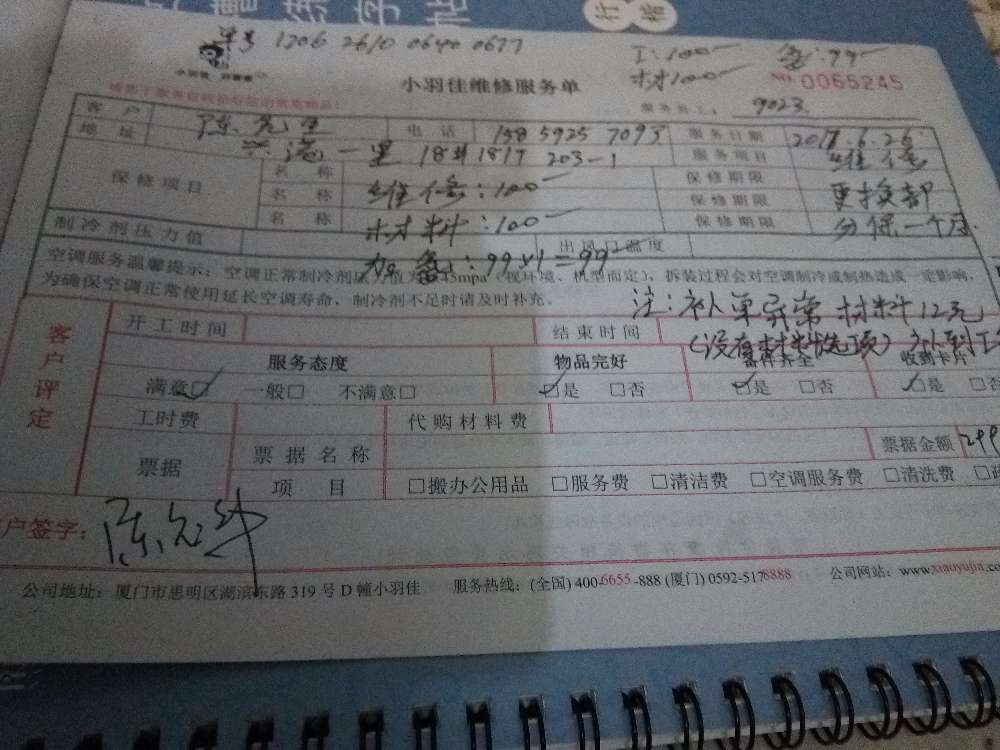 单号 1206 2610 0640 0677 工:100 氨:99
小羽佳 材100 NO. 0065245
小羽佳维修服务单
服务员工: 9023
客户 陈先生 电话 1385925 7093 服务日期 2017.6.26
地址 兴港一里 18# 1817 203-1 服务项目 维修
保修项目 名称 维修:100 保修期限 更换部
名称 材料:100 保修期限 分保一个月
名称 保修期限
制冷剂压力值 加氨:99×1=99 出风口温度
空调服务温馨提示:空调正常制冷剂压力值为 45mpa(视环境、机型而定),拆装过程会对空调制冷或制热造成一定影响,
为确保空调正常使用延长空调寿命,制冷剂不足时请及时补充。
注:补单异常材料12元
(没有材料选项)补到工
开工时间 结束时间
客户评定
服务态度 物品完好 器件齐全 收到卡片
满意☑ 一般□ 不满意□ ☑是 □否 ☑是 □否 ☑是 □否
工时费 代购材料费
票据 票据名称 票据金额 299
项目 □搬办公用品 □服务费 □清洁费 □空调服务费 □清洗费
户签字:
公司地址:厦门市思明区湖滨东路 319 号 D 幢小羽佳 服务热线:(全国) 400-6655-888 (厦门) 0592-5176888 公司网站:www.xiaoyujia.co